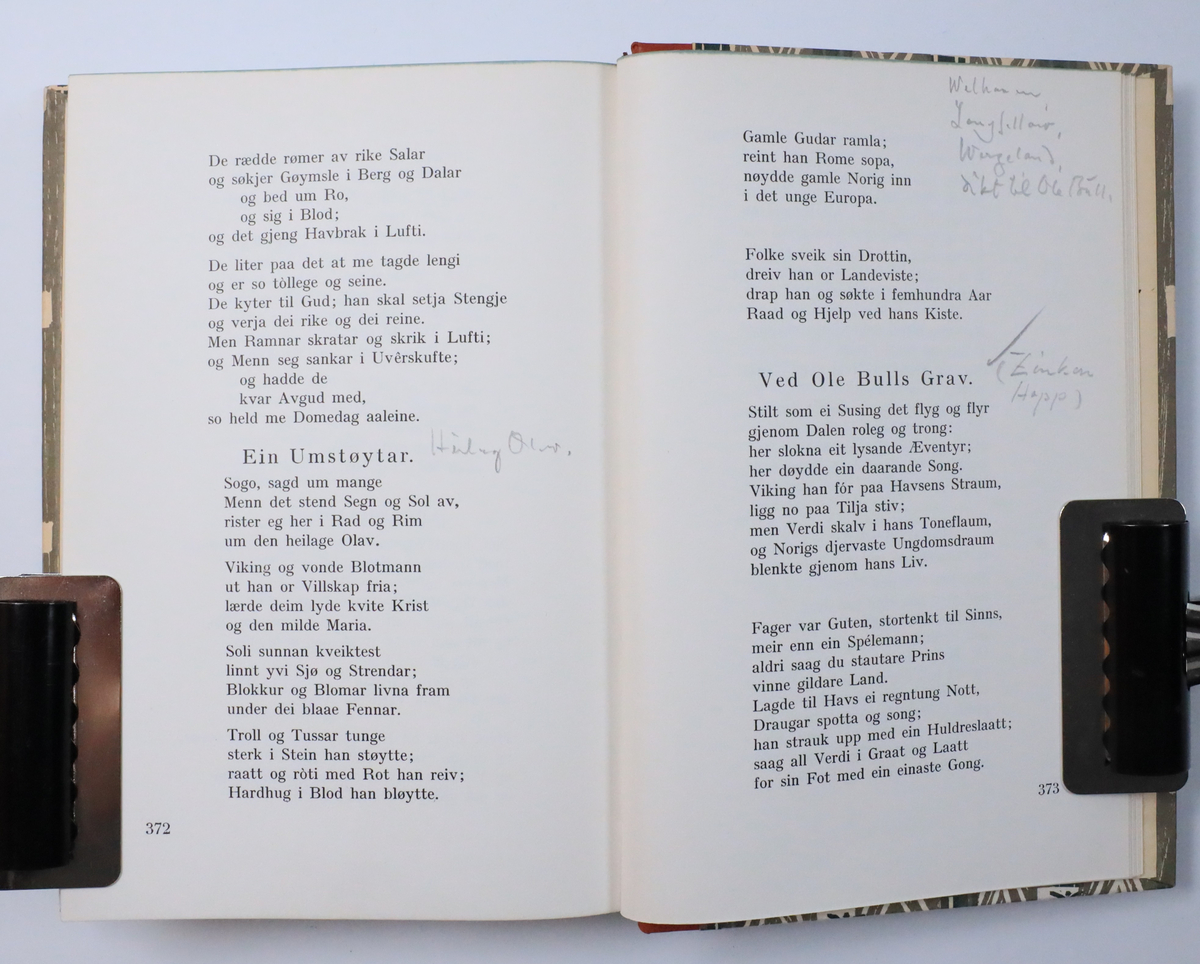 De rædde rømer av rike Salar
og søkjer Gøymsle i Berg og Dalar
og bed um Ro,
og sig i Blod;
og det gjeng Havbrak i Lufti.
De liter paa det at me tagde lengi
og er so tòllege og seine.
De kyter til Gud; han skal setja Stengje
og verja dei rike og dei reine.
Men Ramnar skratar og skrik i Lufti;
og Menn seg sankar i Uvêrskufte;
og hadde de
kvar Avgud med,
so held me Domedag aaleine.
Ein Umstøytar.
Heilag Olav.
Sogo, sagd um mange
Menn det stend Segn og Sol av,
rister eg her i Rad og Rim
um den heilage Olav.
Viking og vonde Blotmann
ut han or Villskap fria;
lærde deim lyde kvite Krist
og den milde Maria.
Soli sunnan kveiktest
linnt yvi Sjø og Strendar;
Blokkur og Blomar livna fram
under dei blaae Fennar.
Troll og Tussar tunge
sterk i Stein han støytte;
raatt og ròti med Rot han reiv;
Hardhug i Blod han bløytte.
372
Welhaven,
Longfellow,
Wergeland,
dikt til Ole Bull.
Gamle Gudar ramla;
reint han Rome sopa,
nøydde gamle Norig inn
i det unge Europa.
Folke sveik sin Drottin,
dreiv han or Landeviste;
drap han og søkte i femhundra Aar
Raad og Hjelp ved hans Kiste.
Ved Ole Bulls Grav.
(Zinken
Hopp)
Stilt som ei Susing det flyg og flyr
gjenom Dalen roleg og trong:
her slokna eit lysande Æventyr;
her døydde ein daarande Song.
Viking han fór paa Havsens Straum,
ligg no paa Tilja stiv;
men Verdi skalv i hans Toneflaum,
og Norigs djervaste Ungdomsdraum
blenkte gjenom hans Liv.
Fager var Guten, stortenkt til Sinns,
meir enn ein Spélemann;
aldri saag du stautare Prins
vinne gildare Land.
Lagde til Havs ei regntung Nott,
Draugar spotta og song;
han strauk upp med ein Huldreslaatt;
saag all Verdi i Graat og Laatt
for sin Fot med ein einaste Gong.
373